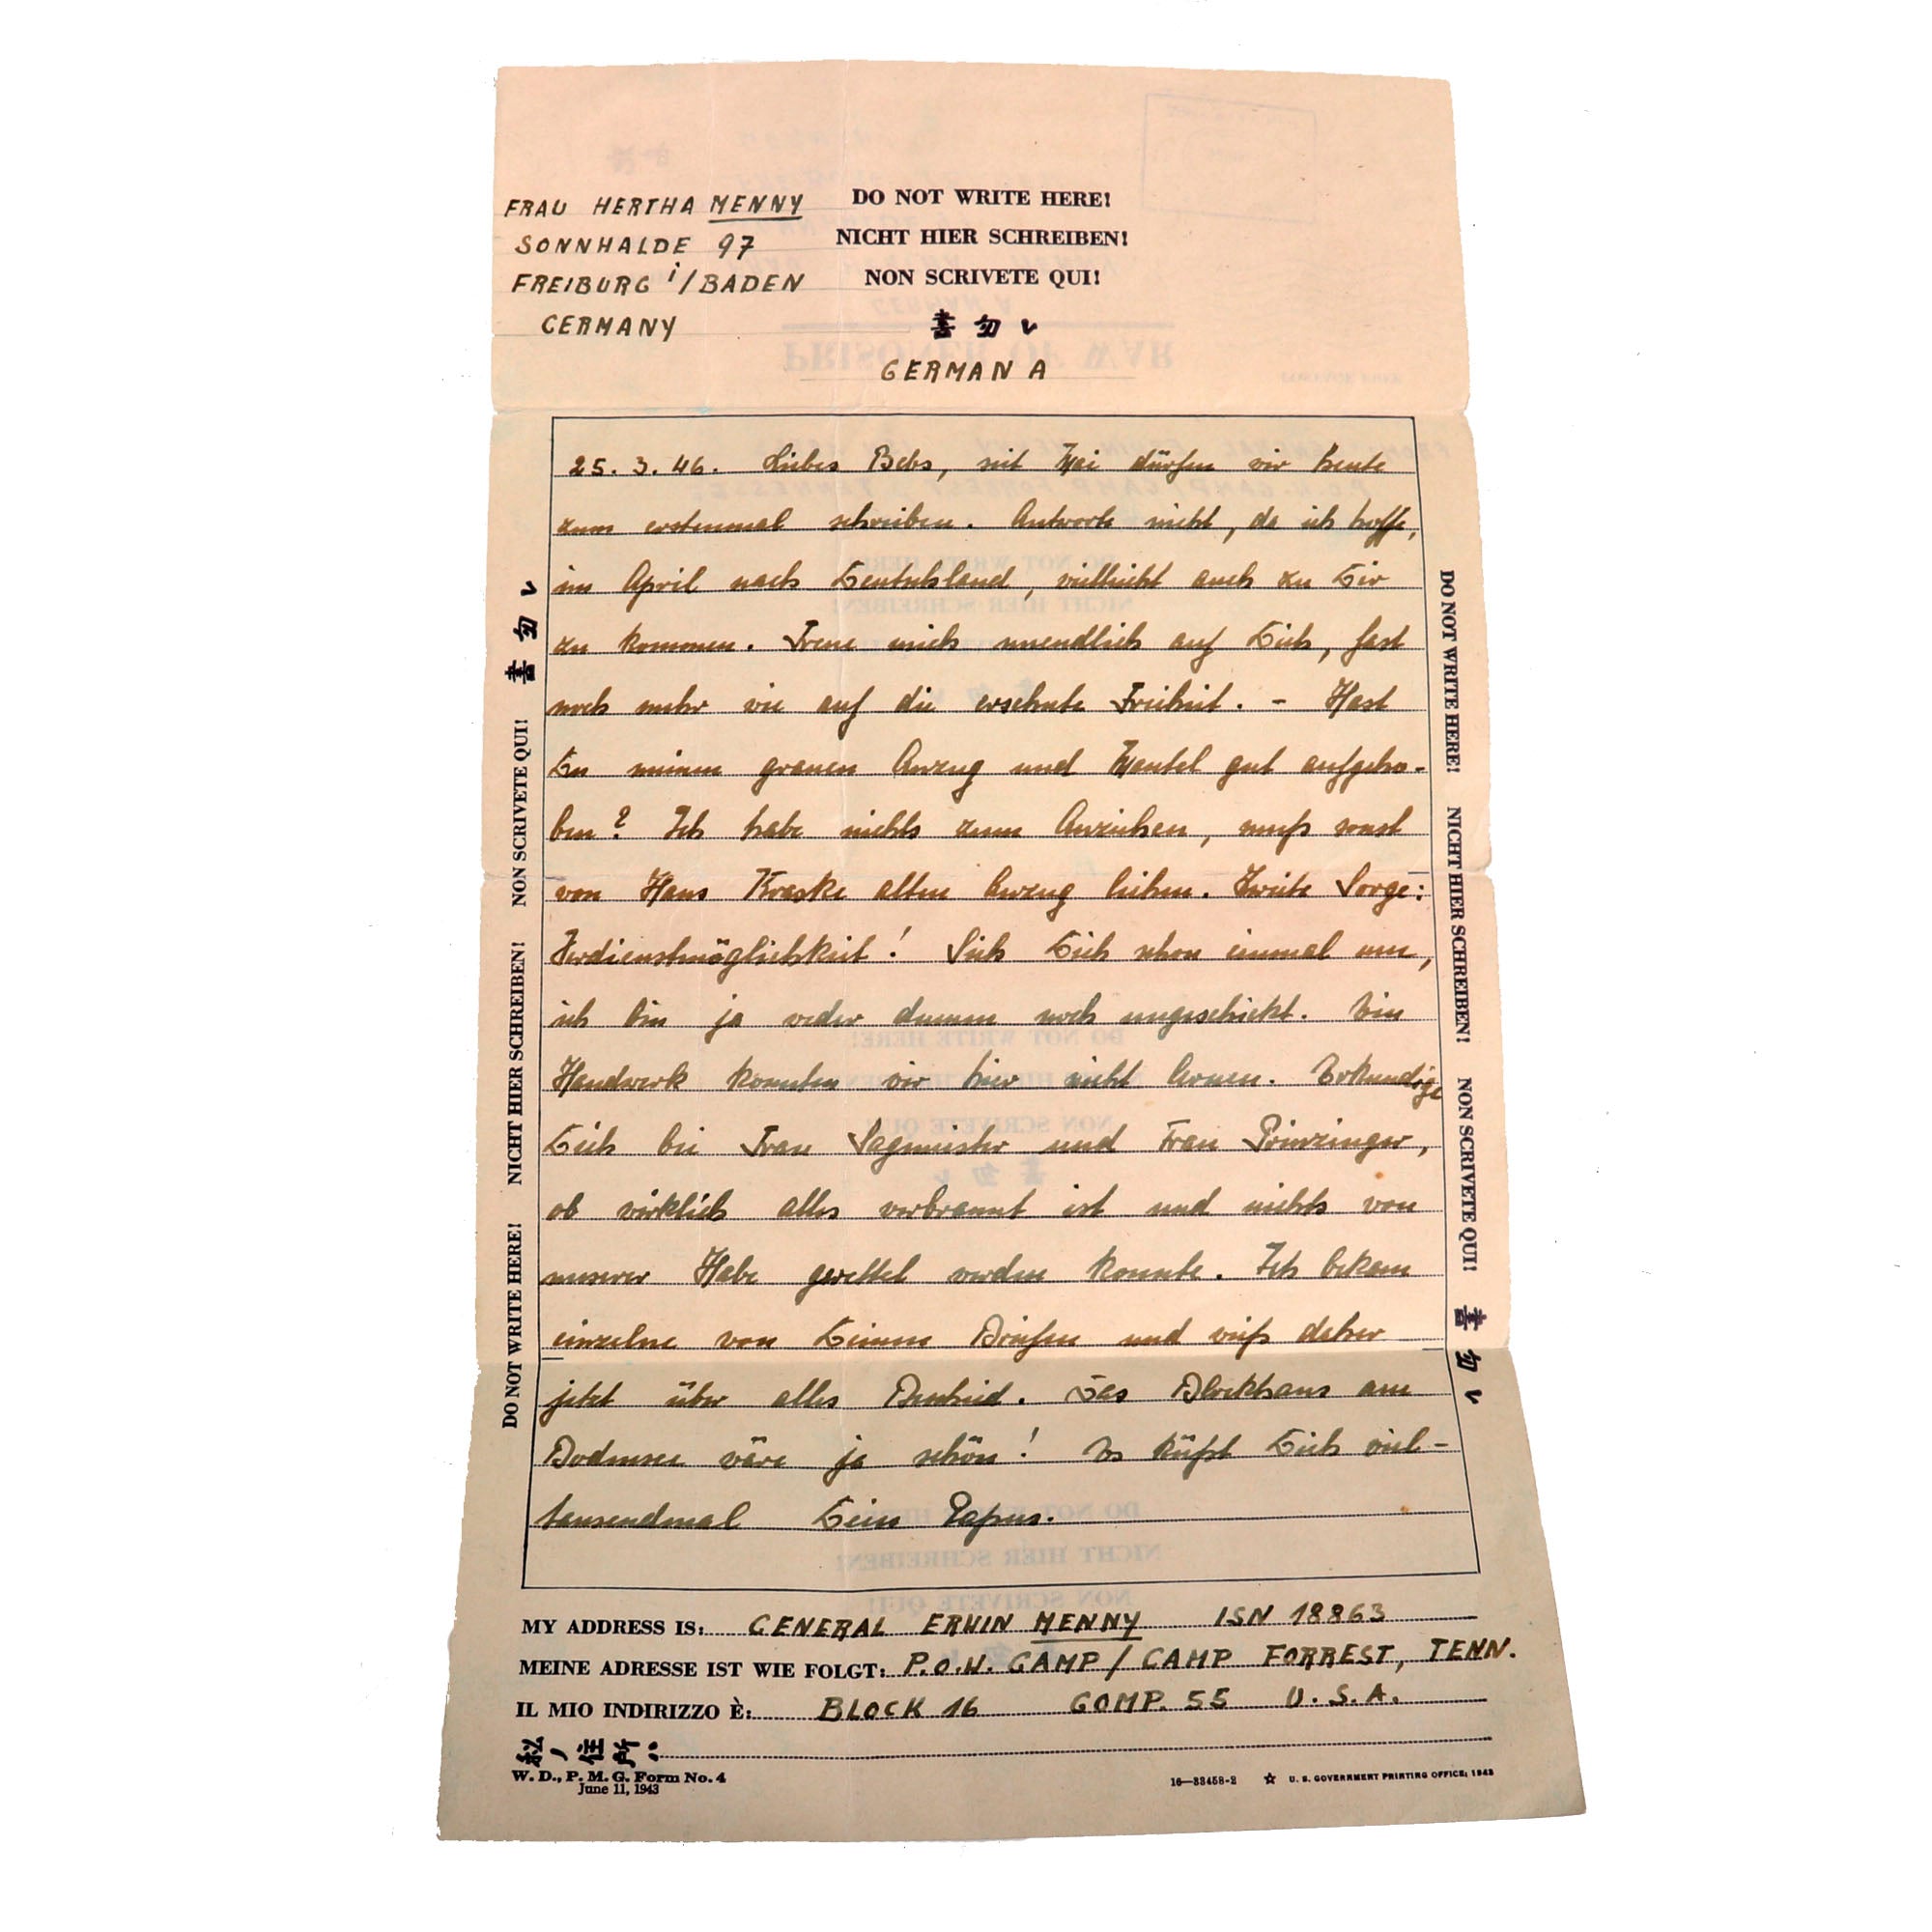 FRAU HERTHA MENNY
SONNHALDE 97
FREIBURG i/BADEN
GERMANY
DO NOT WRITE HERE!
NICHT HIER SCHREIBEN!
NON SCRIVETE QUI!
書勿レ
GERMAN A
25. 3. 46. Liebes Bebs, seit Mai dürfen wir heute
zum erstenmal schreiben. Antworte nicht, da ich hoffe,
im April nach Deutschland, vielleicht auch zu Dir
zu kommen. Freue mich unendlich auf Dich, fast
noch mehr wie auf die ersehnte Freiheit. – Hast
Du meinen grauen Anzug und Mantel gut aufgeho-
ben? Ich habe nichts zum Anziehen, muß sonst
von Hans Kraske alten Anzug leihen. Zweite Sorge:
Verdienstmöglichkeit! Sieh Dich schon einmal um,
ich bin ja weder dumm noch ungeschickt. Ein
Handwerk konnten wir hier nicht lernen. Erkundige
Dich bei Frau Sagmeister und Frau Prinzinger,
ob wirklich alles verbrannt ist und nichts von
unserer Habe gerettet werden konnte. Ich bekam
einzelne von Deinen Briefen und weiß daher
jetzt über alles Bescheid. Das Blockhaus am
Bodensee wäre ja schön! Es küßt Dich viel-
tausendmal Dein Papus.
DO NOT WRITE HERE! NICHT HIER SCHREIBEN! NON SCRIVETE QUI! 書勿レ
DO NOT WRITE HERE! NICHT HIER SCHREIBEN! NON SCRIVETE QUI! 書勿レ
MY ADDRESS IS: GENERAL ERWIN MENNY ISN 18863
MEINE ADRESSE IST WIE FOLGT: P.O.W. CAMP / CAMP FORREST, TENN.
IL MIO INDIRIZZO È: BLOCK 16 COMP. 55 U.S.A.
私ノ住所:
W. D., P. M. G. Form No. 4
June 11, 1943
16—33458-2 ☆ U. S. GOVERNMENT PRINTING OFFICE: 1943